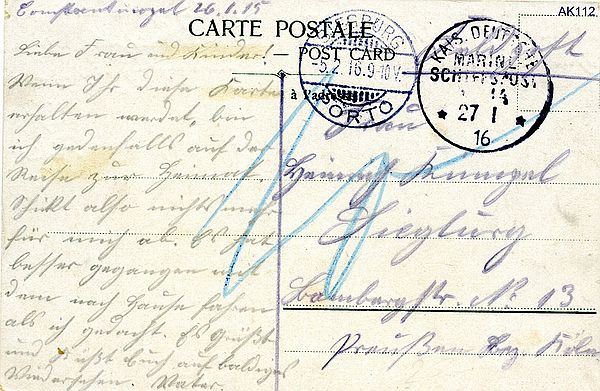 Constantinopel 26.1.15
AK112
CARTE POSTALE
POST CARD
SIEGBURG
-5.2.16.9-10V.
PORTO
KAIS. DEUTSCHE
MARINE-
SCHIFFSPOST
27 I
16
Feldpost
Liebe Frau und Kinder!
Wenn Ihr diese Karte
erhalten werdet, bin
ich jedenfalls auf der
Reise zur Heimat.
Schikt also nichts mehr
für mich ab. Es hat
besser gegangen mit
dem nach Hause fahren
als ich gedacht. Es Grüßt
und Küßt Euch auf baldiges
Wiedersehen. Vater.
Frau
Heinrich
Siegburg
Bambergstr. No 13
Preußen Bez. Köln